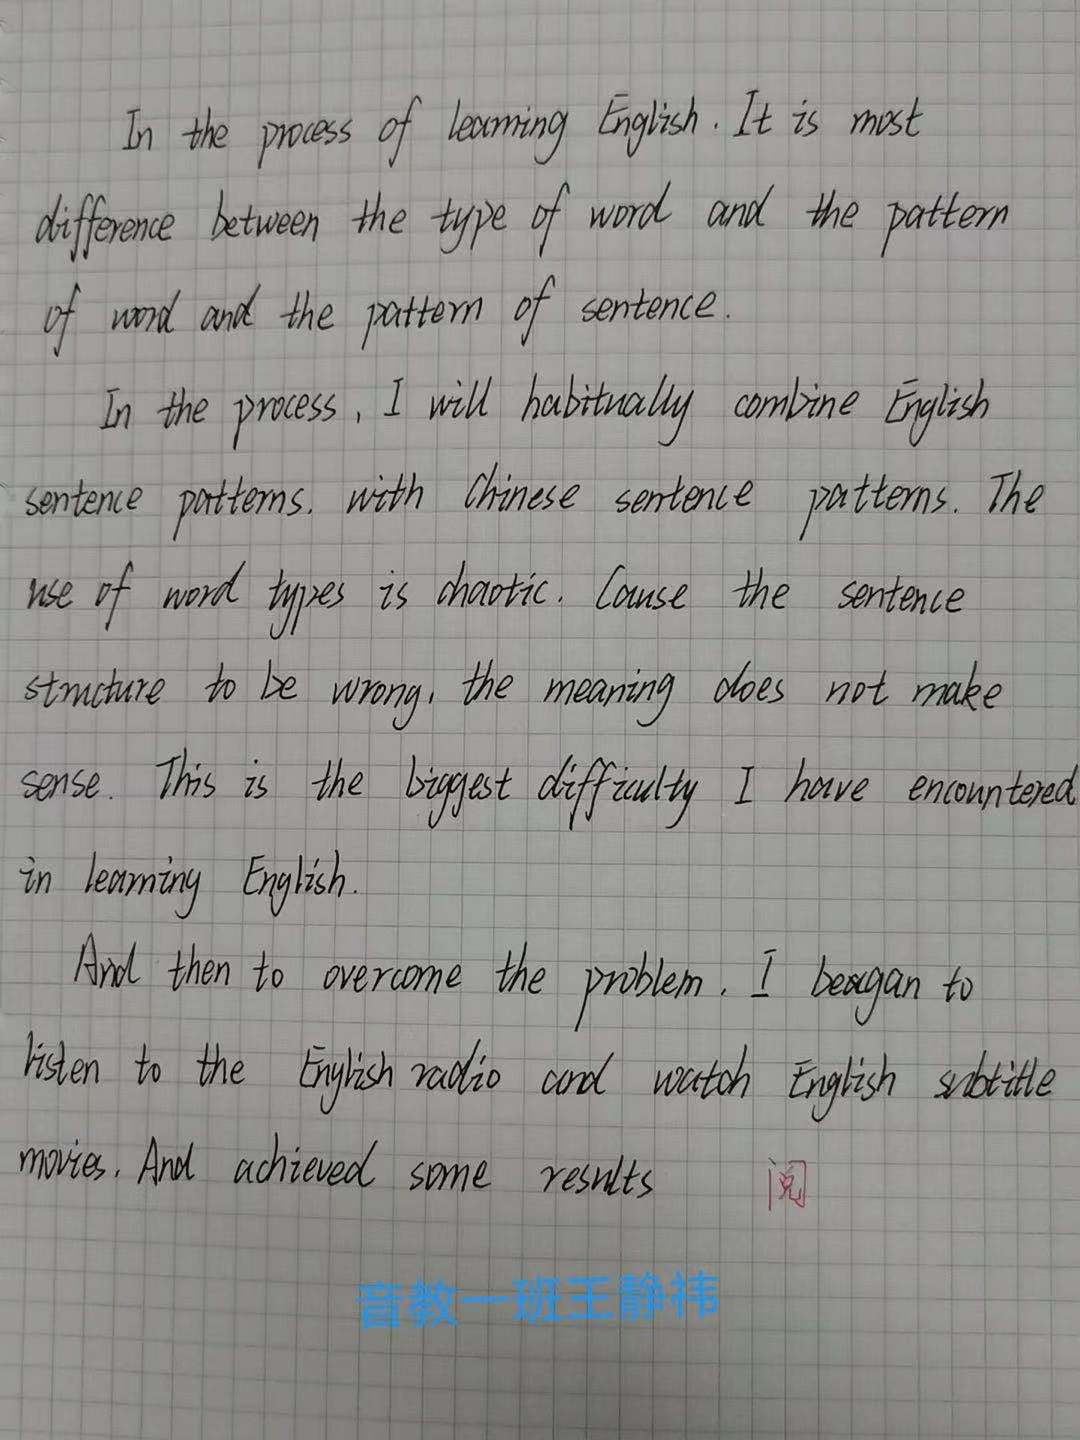 In the process of learning English. It is most
difference between the type of word and the pattern
of word and the pattern of sentence.
In the process, I will habitually combine English
sentence patterns. with Chinese sentence patterns. The
use of word types is chaotic. Cause the sentence
structure to be wrong, the meaning does not make
sense. This is the biggest difficulty I have encountered
in learning English.
And then to overcome the problem. I beagan to
listen to the English radio and watch English subtitle
movies. And achieved some results
阅
音教一班王静祎